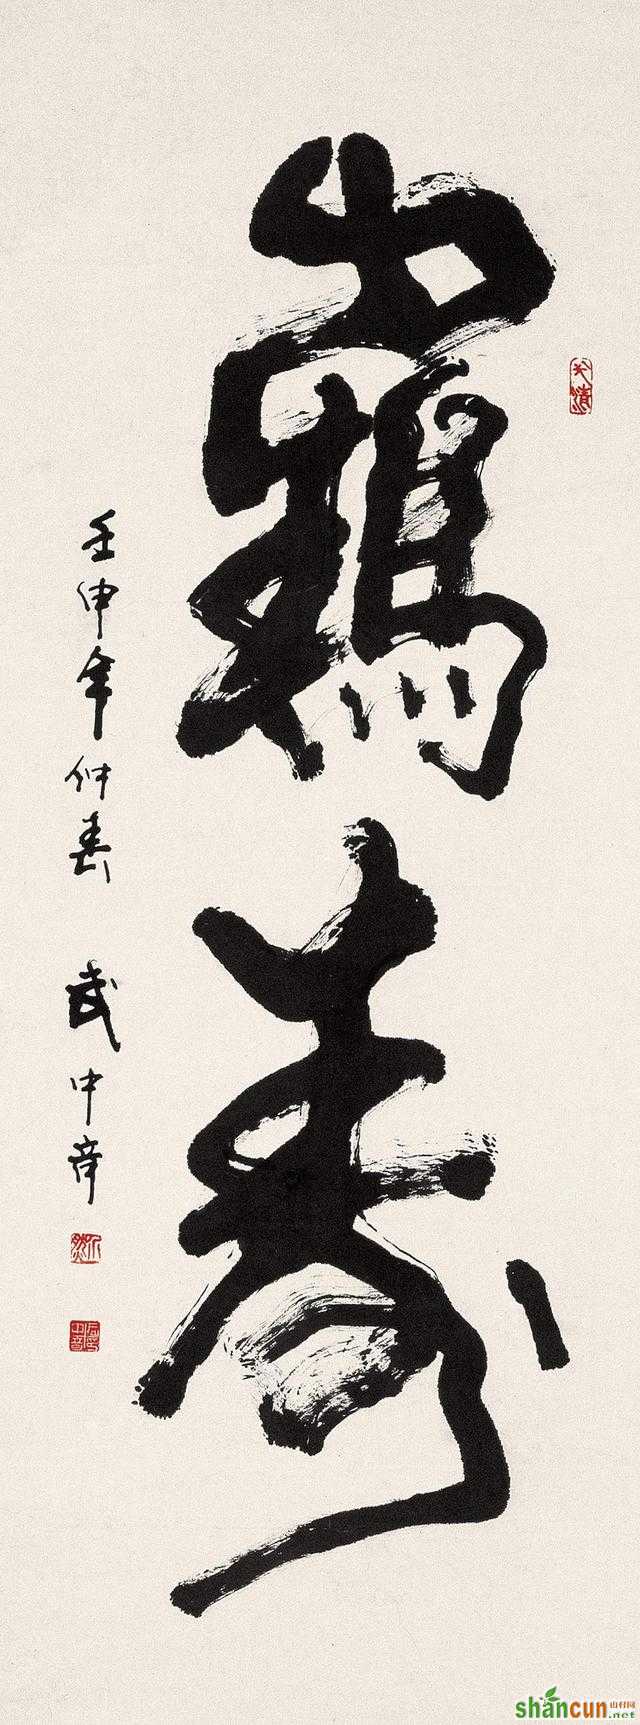 鶴寿
壬申年仲春 武中奇
shancun 山村网
.net